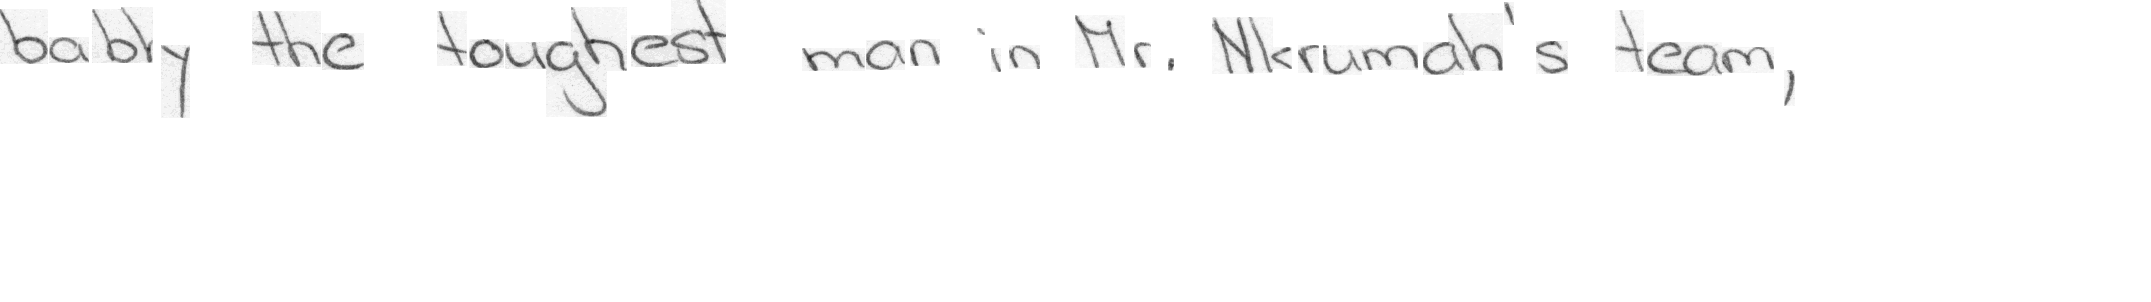 bably the toughest man in Mr. Nkrumah's team,